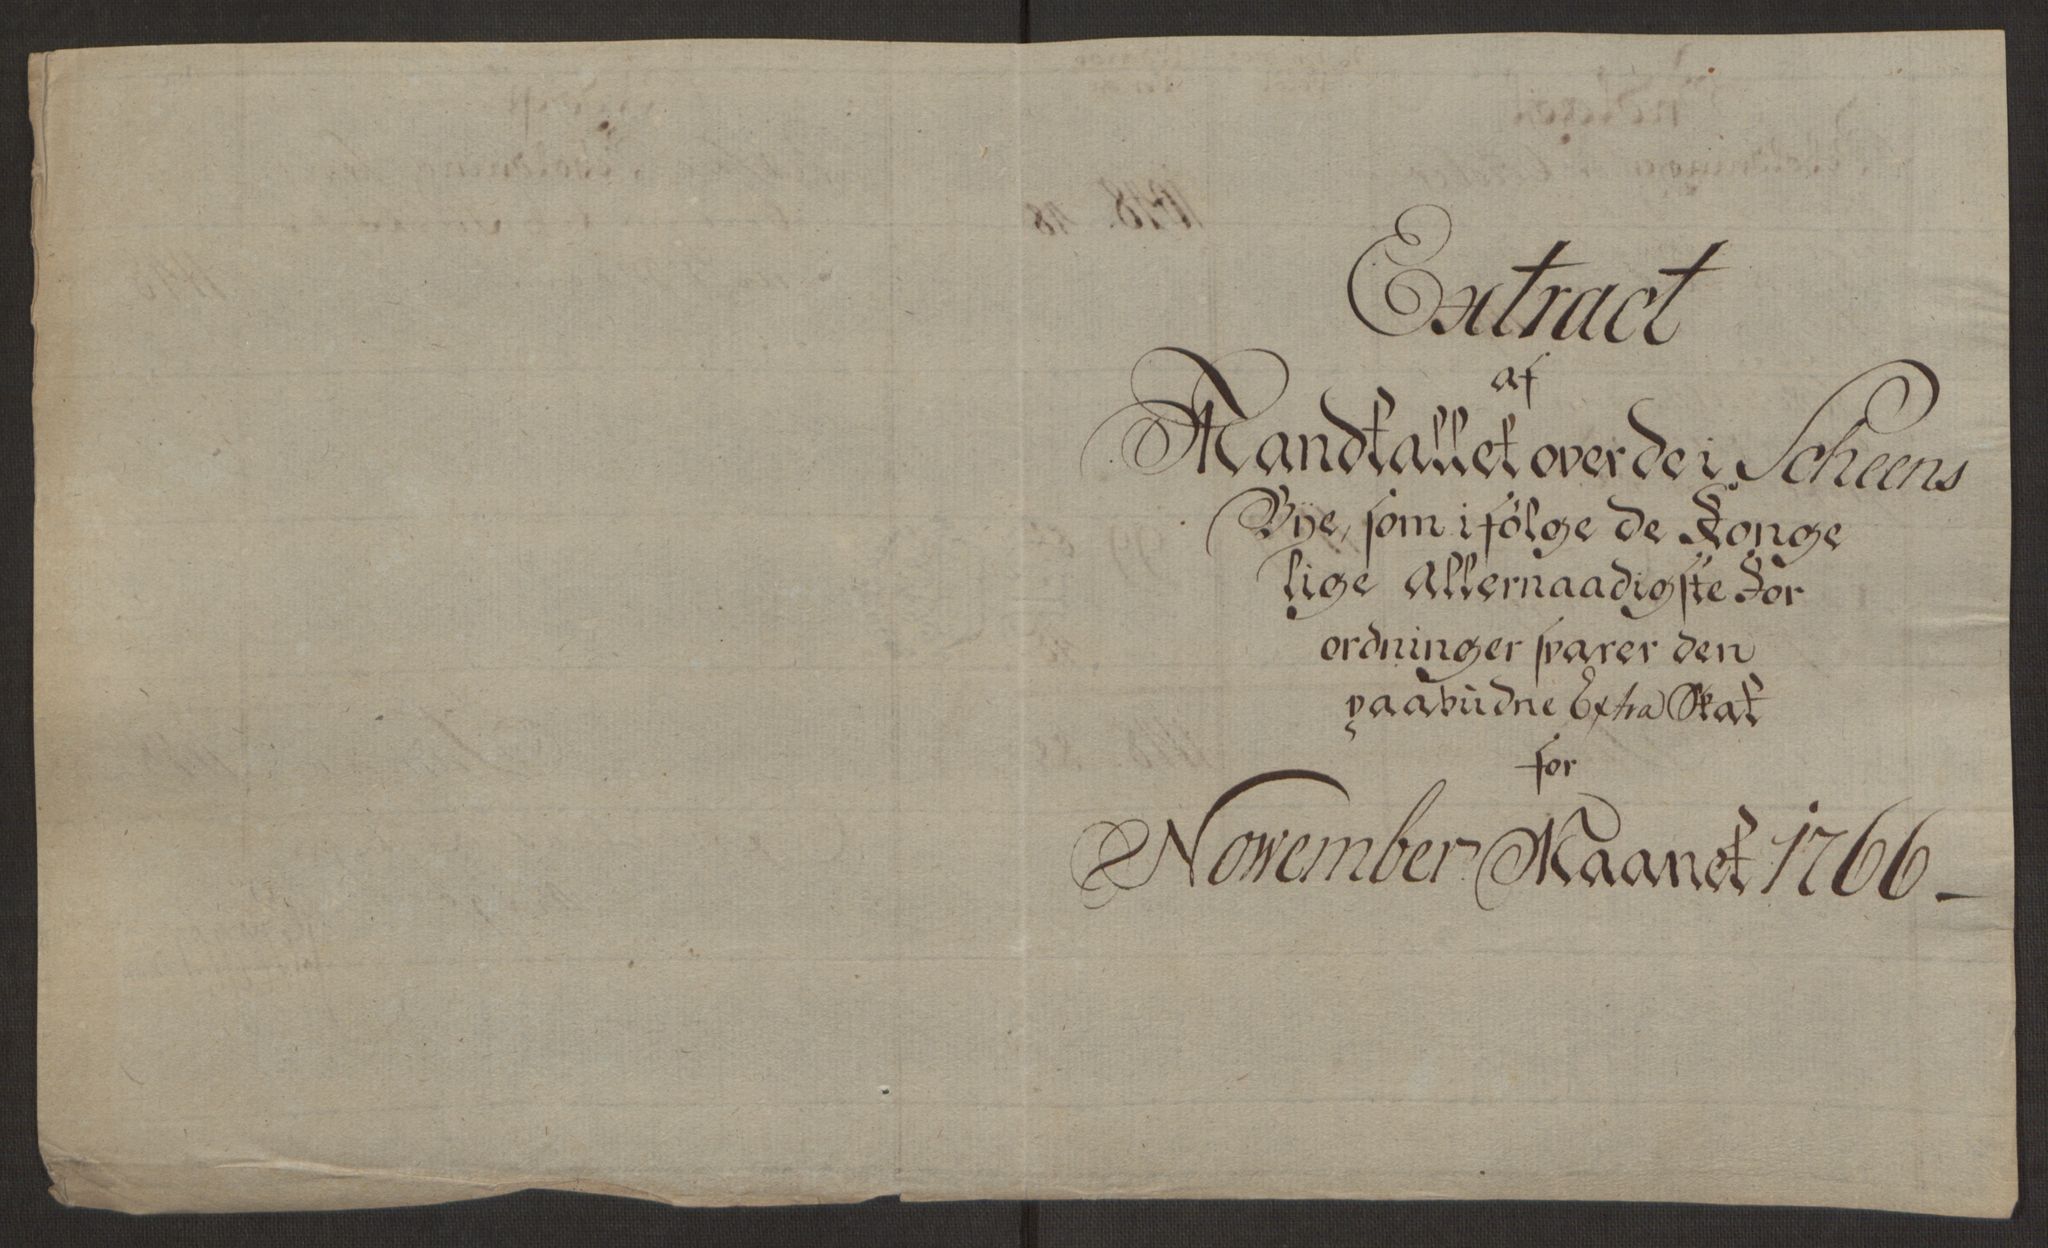 Extract
af
Mandtallet over de i Scheens
Bÿe, som i fölge de Konge
lige Allernaadigste For
ordninger svarer den
paabudne Extra Skat
for
November Maanet 1766 -